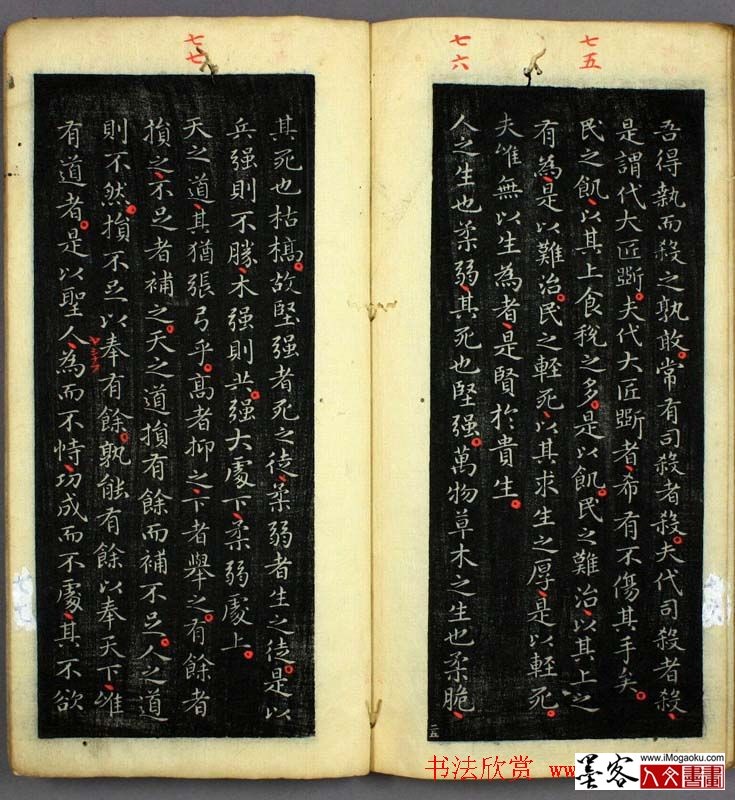 七五
七六
吾得執而殺之孰敢常有司殺者殺夫代司殺者殺
是謂代大匠斲夫代大匠斲者希有不傷其手矣
民之飢以其上食稅之多是以飢民之難治以其上之
有為是以難治民之輕死以其求生之厚是以輕死
夫唯無以生為者是賢於貴生
人之生也柔弱其死也堅强萬物草木之生也柔脆
二五
七七
其死也枯槁故堅强者死之徒柔弱者生之徒是以
兵强則不勝木强則共强大處下柔弱處上
天之道其猶張弓乎高者抑之下者舉之有餘者
損之不足者補之天之道損有餘而補不足人之道
則不然損不足以奉有餘孰能有餘以奉天下唯
有道者是以聖人為而不恃功成而不處其不欲
书法欣赏 www
墨客
www.iMogaoku.com
人文書畫